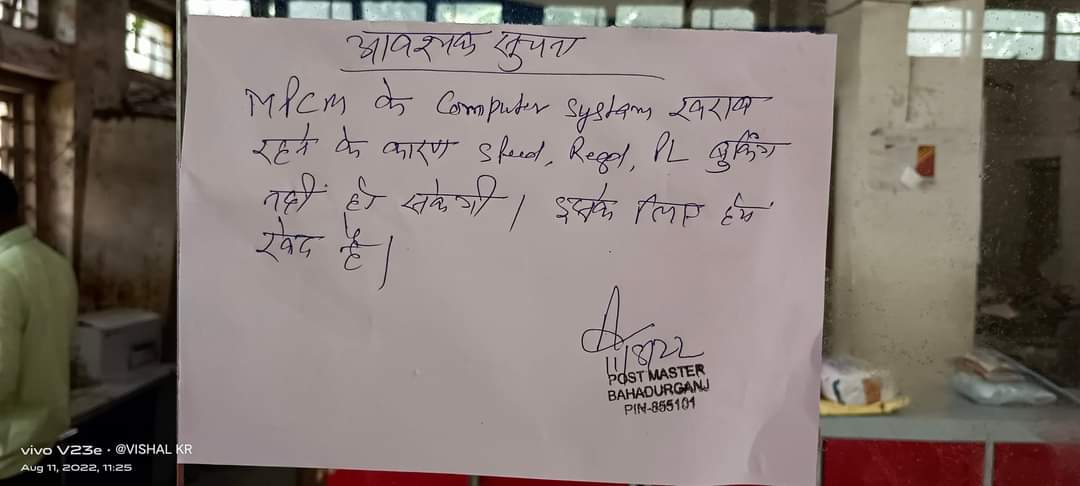 आवश्यक सुचना
MPCM के Computer system खराब
रहने के कारण Speed, Regd, PL बुकिंग
नहीं हो सकेगी। इसके लिए हमें
खेद है।
11/8/22
POST MASTER
BAHADURGANJ
PIN-855101
vivo V23e · @VISHAL KR
Aug 11, 2022, 11:25